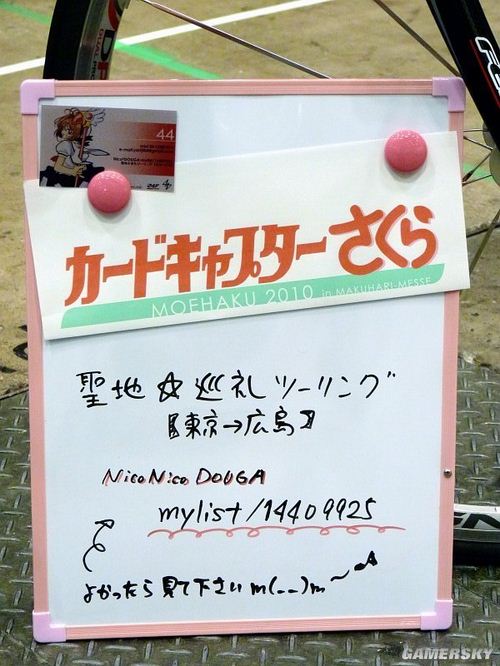 44
カードキャプターさくら
MOEHAKU 2010 in MAKUHARI-MESSE
聖地☆巡礼ツーリング
【東京→広島】
NicoNico DOUGA
mylist/14409925
よかったら見て下さいm(__)m～♪
GAMERSKY